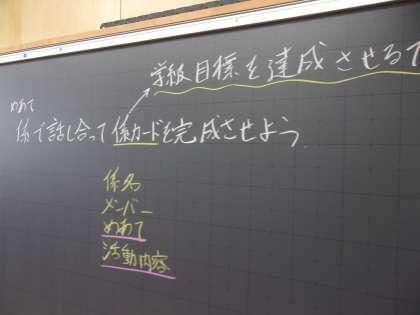 学級目標を達成させる
めあて
係で話し合って係カードを完成させよう
係名
メンバー
めあて
活動内容